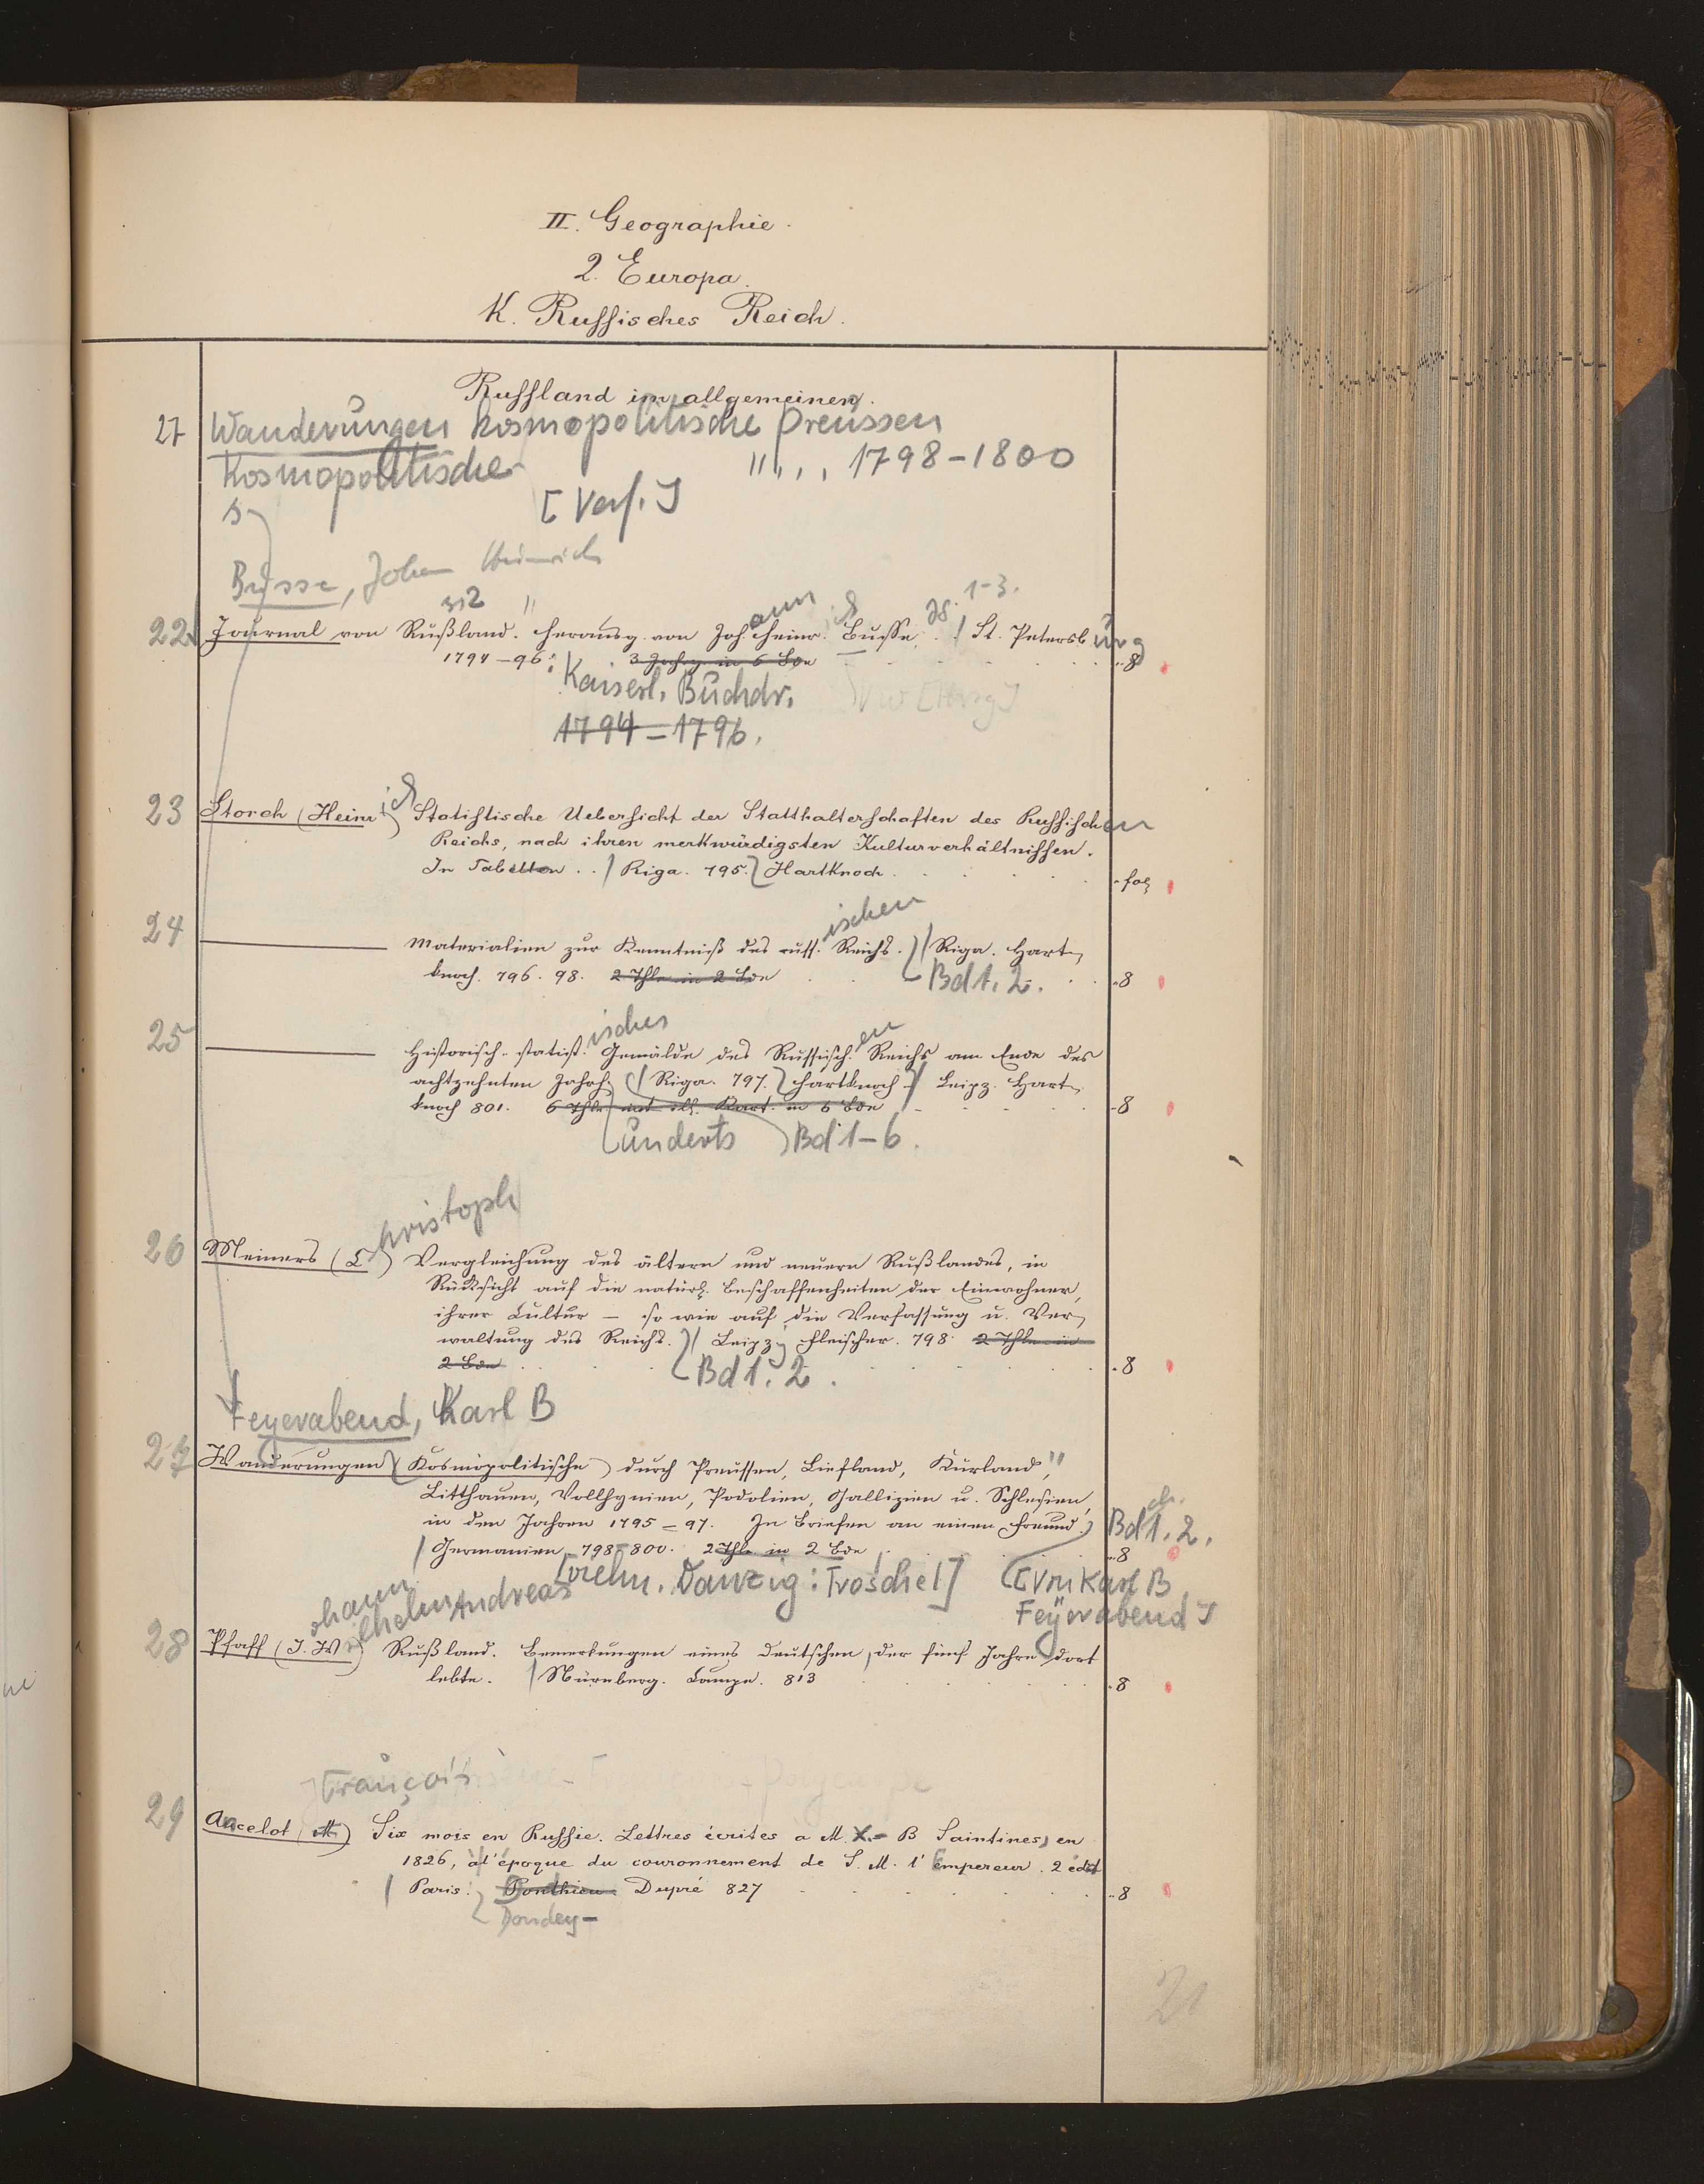 II. Geographie.
2. Europa.
K. Russisches Reich.
Russland im allgemeinen.
27 Wanderungen kosmopolitische Preussen
Kosmopolitische " , , , 1798-1800
s. [Verf.]
Busse, Johann Heinrich
1-3.
22 Journal von Rußland. Herausg. von Johann Heinr. Busse. Jg. / St. Petersburg
1794-96: 3 Jahrg in 6 Bde 8
Kaiserl. Buchdr.
1794-1796.
VW [Hrsg]
23 Storch (Heinrich) Statistische Uebersicht der Statthalterschaften des Russischen
Reichs, nach ihren merkwürdigsten Kulturverhältnissen.
In Tabellen. / Riga. 795. Hartknoch. fol
24 Materialien zur Kenntniß des russischen Reichs. // Riga. Hart-
knoch. 796. 98. 2 Thle in 2 Bde Bd 1. 2. 8
25 Historisch-statistisches Gemälde des Russischen Reichs am Ende des
achtzehnten Jahrh. / Riga. 797. Hartknoch / Leipz. Hart-
knoch 801. 6 Thle mit ill. Kart. in 6 Bde 8
underts Bd 1-6.
26 Meiners (Christoph) Vergleichung des ältern und neuern Rußlandes, in
Rücksicht auf die natürl. Beschaffenheiten der Einwohner,
ihrer Cultur – so wie auf die Verfassung u. Ver-
waltung des Reichs. // Leipzig Fleischer. 798. 2 Thle in
2 Bde Bd 1. 2. 8
Feyerabend, Karl B
27 Wanderungen (Kosmopolitische) durch Preussen, Liefland, Kurland,"
Litthauen, Vollhynien, Podolien, Gallizien u. Schlesien,
in den Jahren 1795-97. In Briefen an einen Freund. Bd 1. 2.
/ Germanien 798-800. 2 Thle in 2 Bde 8
Danzig: Troschel] [Von Karl B
Feyerabend]
28 Pfaff (Johann Wilhelm Andreas) Rußland. Bemerkungen eines Deutschen, der fünf Jahre dort
lebte. / Nürnberg. Campe. 813 8
François
29 Ancelot (M) Six mois en Russie. Lettres écrites a M. X.- B Saintines, en
1826, à l'époque du couronnement de S. M. l'empereur. 2 édit
/ Paris: Ponthieu. Dupré 827 8
Dondey-
21